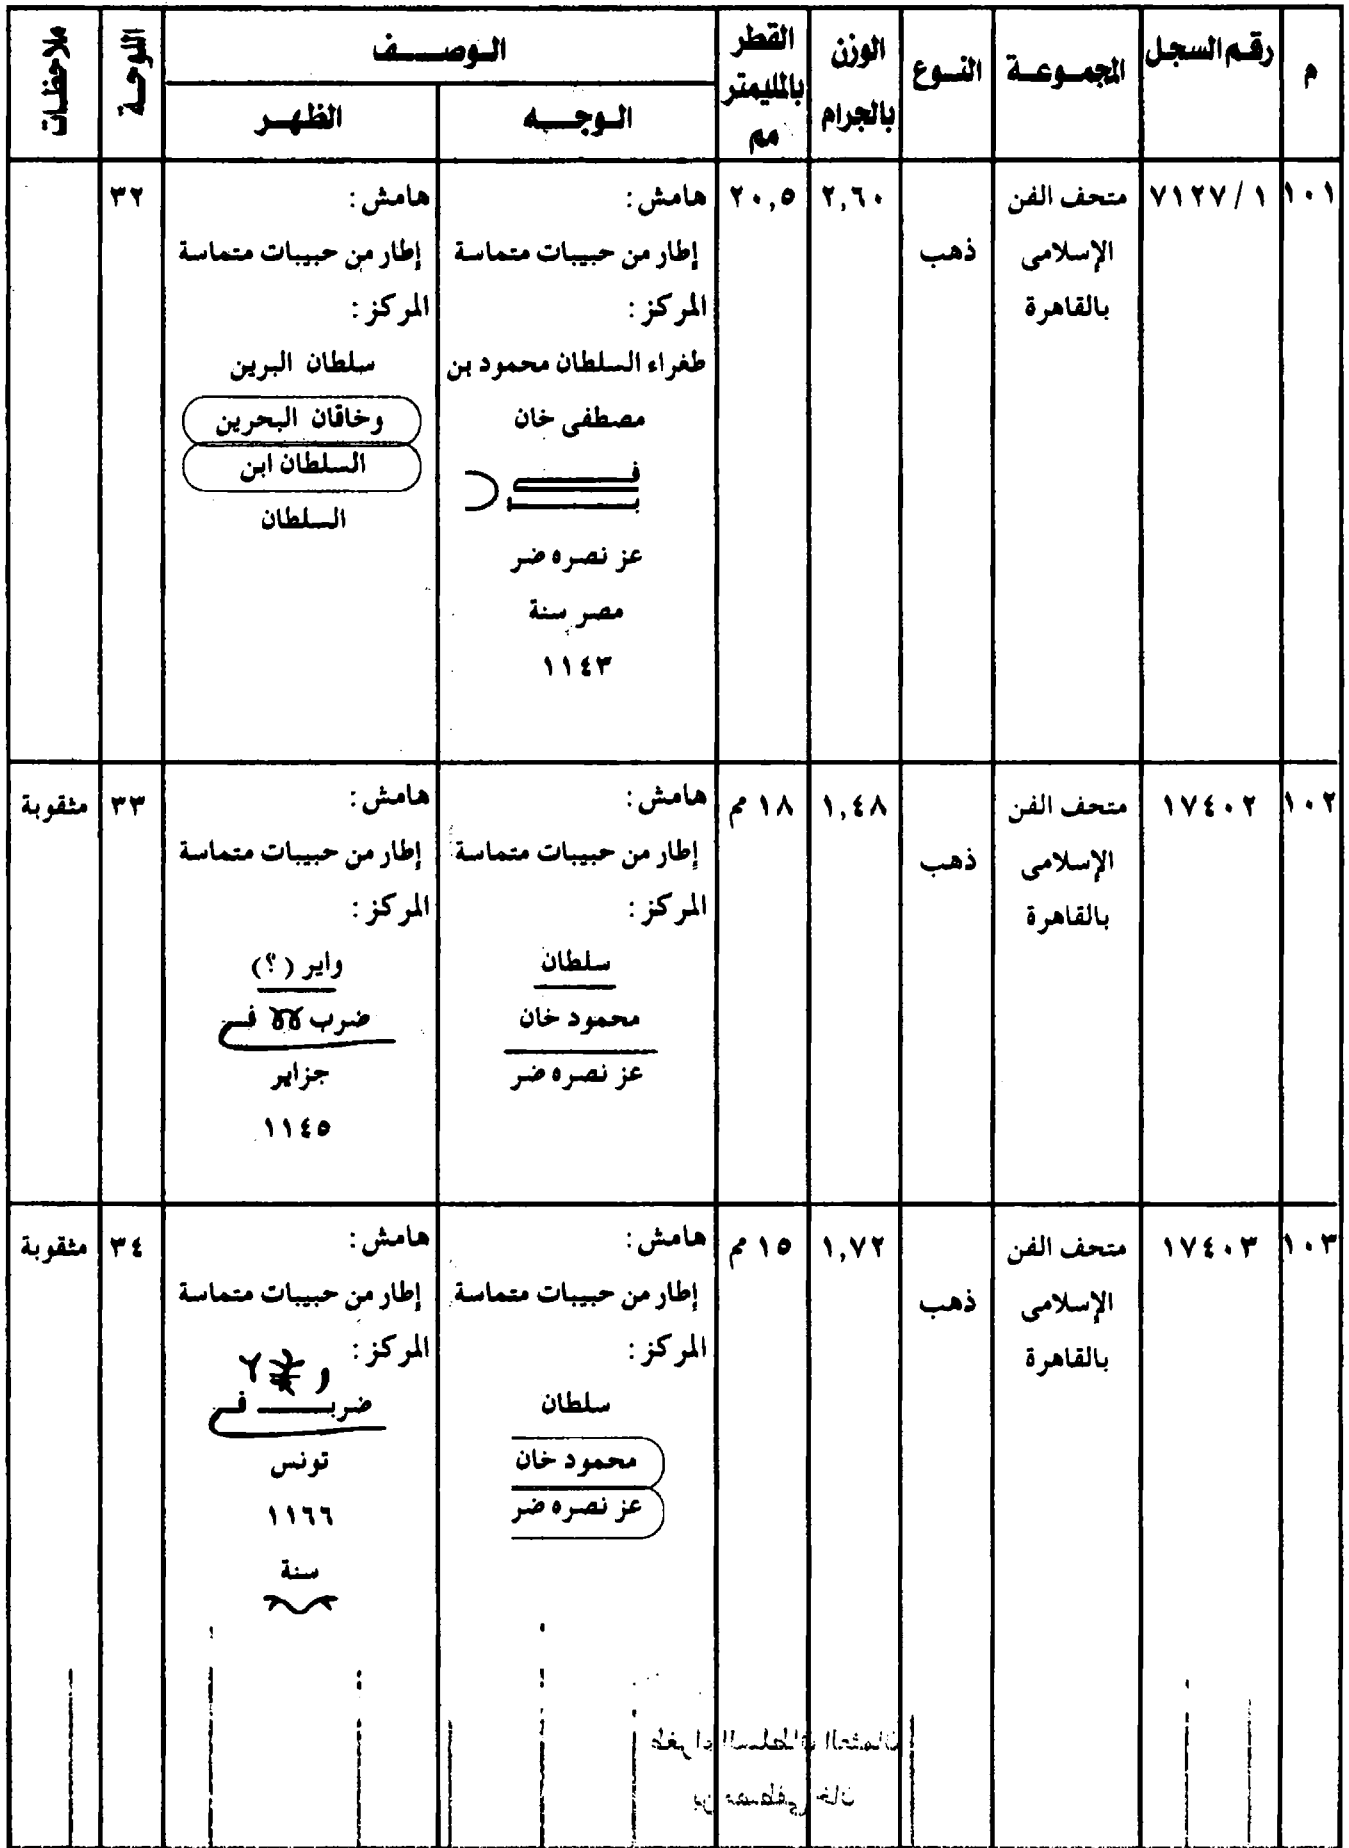 م
رقم السجل
المجموعة
النوع
الوزن
بالجرام
القطر
بالمليمتر
مم
الوصف
الوجه
الظهر
اللوحة
ملاحظات
١٠١
٧١٢٧/١
متحف الفن
الإسلامى
بالقاهرة
ذهب
٢,٦٠
٢٠,٥
هامش:
إطار من حبيبات متماسة
المركز:
طغراء السلطان محمود بن
مصطفى خان
فـ
بـ
عز نصره ضر
مصر سنة
١١٤٣
هامش:
إطار من حبيبات متماسة
المركز:
سلطان البرين
وخاقان البحرين
السلطان ابن
السلطان
٣٢
١٠٢
١٧٤٠٢
متحف الفن
الإسلامى
بالقاهرة
ذهب
١,٤٨
١٨ مم
هامش:
إطار من حبيبات متماسة
المركز:
سلطان
محمود خان
عز نصره ضر
هامش:
إطار من حبيبات متماسة
المركز:
واير (؟)
ضرب فى
جزاير
١١٤٥
٣٣
مثقوبة
١٠٣
١٧٤٠٣
متحف الفن
الإسلامى
بالقاهرة
ذهب
١,٧٢
١٥ مم
هامش:
إطار من حبيبات متماسة
المركز:
سلطان
محمود خان
عز نصره ضر
هامش:
إطار من حبيبات متماسة
المركز:
ضربـ فى
تونس
١١٦٦
سنة
٣٤
مثقوبة